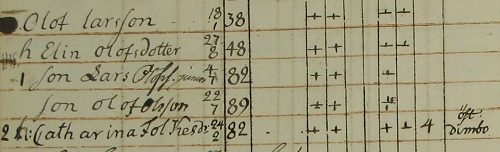 Olof larsson 18/1 38 + + + +
h Elin olofsdotter 27/8 48 + + + +
1 son Lars Olofss. 4/7 82 + + +
son olof olsson 22/7 89 + + +
2 h: Catharina Folkesdr 24/2 82 + + + + 4 öst dimbo